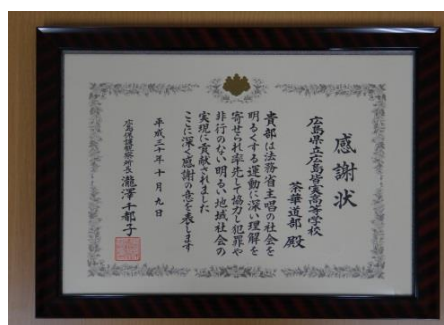 感謝状
広島県立広島皆実高等学校
茶華道部 殿
貴部は法務省主唱の社会を
明るくする運動に深い理解を
寄せられ率先して協力し犯罪や
非行のない明るい地域社会の
実現に貢献されました
ここに深く感謝の意を表します
平成三十年十月九日
広島保護観察所長 瀧澤千都子